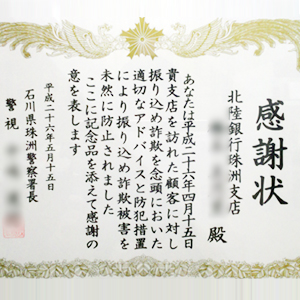 感謝状
北陸銀行珠洲支店
殿
あなたは平成二十六年四月十五日
貴支店を訪れた顧客に対し
振り込め詐欺を念頭においた
適切なアドバイスと防犯措置
により振り込め詐欺被害を
未然に防止されました
ここに記念品を添えて感謝の
意を表します
平成二十六年五月十五日
石川県珠洲警察署長
警視